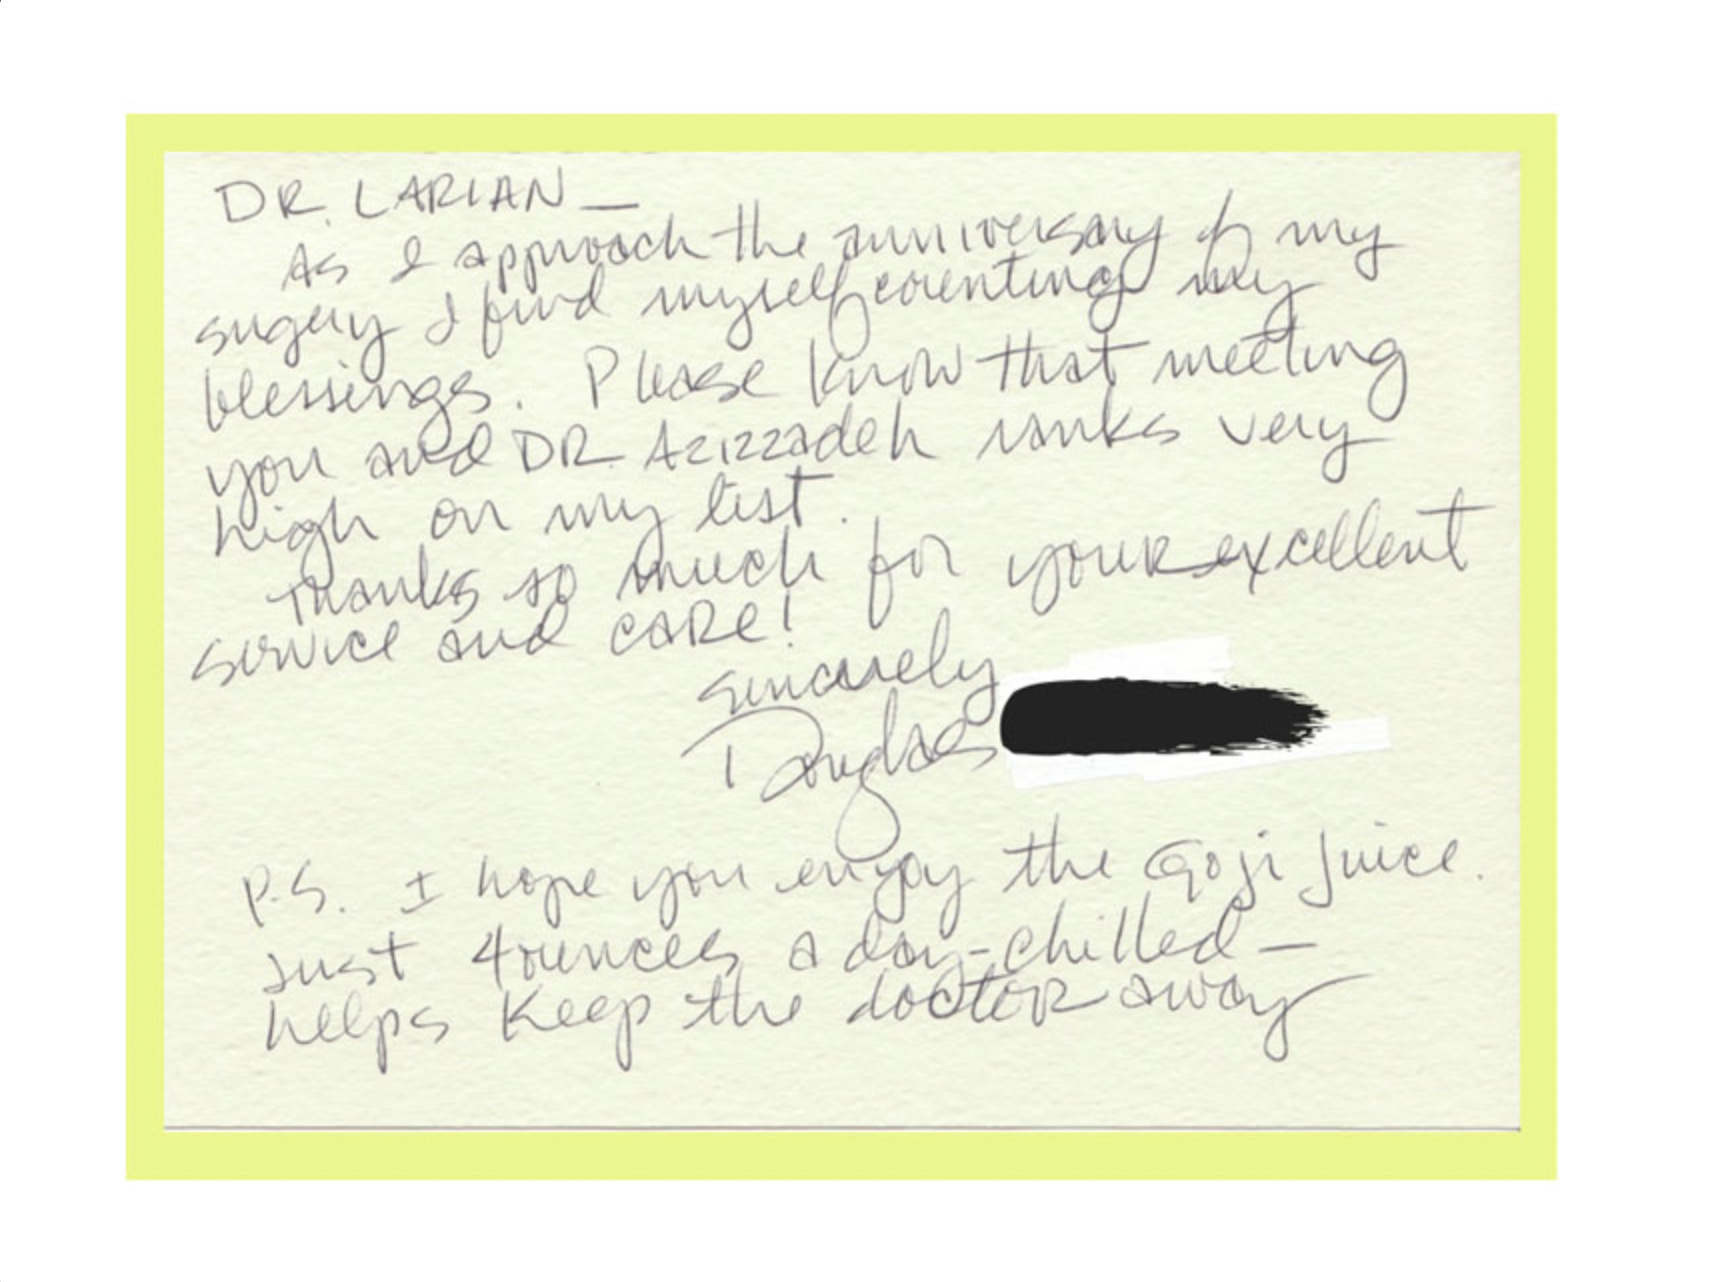 DR. LARIAN —
As I approach the anniversary of my
sugery I find myself counting my
blessings. Please know that meeting
you and DR. Azizzadeh ranks very
high on my list.
Thanks so much for your excellent
service and care!
Sincerely
Douglas
P.S. I hope you enjoy the Goji Juice.
Just 4 ounces a day - chilled —
helps keep the doctor away